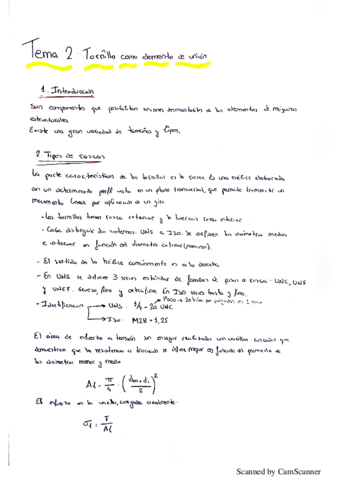 Tema 2. Tornillo como elemento de unión
1. Introducción
Son componentes que posibilitan uniones desmontables a los elementos de máquinas
estructurales
Existe una gran variedad de tamaños y tipos.
2. Tipos de roscas
La parte característica de los tornillos es la rosca. Es una hélice elaborada
con un determinado perfil visto en un plano transversal, que permite transmitir un
movimiento lineal por aplicación de un giro
- Los tornillos tienen rosca exterior y las tuercas rosca interior
- Cabe distinguir dos sistemas: UNS e ISO. Se definen los diámetros medio
e interior en función del diámetro exterior (nominal).
- El sentido de la hélice comúnmente es a la derecha.
- En UNS se definen 3 series estándar de familias de paso de rosca: UNC, UNF
y UNEF. Gruesa, fina y extrafina. En ISO series basta y fina.
- Identificación → UNS: 1/4 - 20 UNC
→ ISO: M28 × 1,25
El área de esfuerzo a tensión
demuestran que la resistencia a tracción se define mejor en función del promedio de
los diámetros menor y medio
At = π/4 · (dm + di / 2)²
El esfuerzo en la varilla, cargada axialmente:
σt = T / At
Scanned by CamScanner